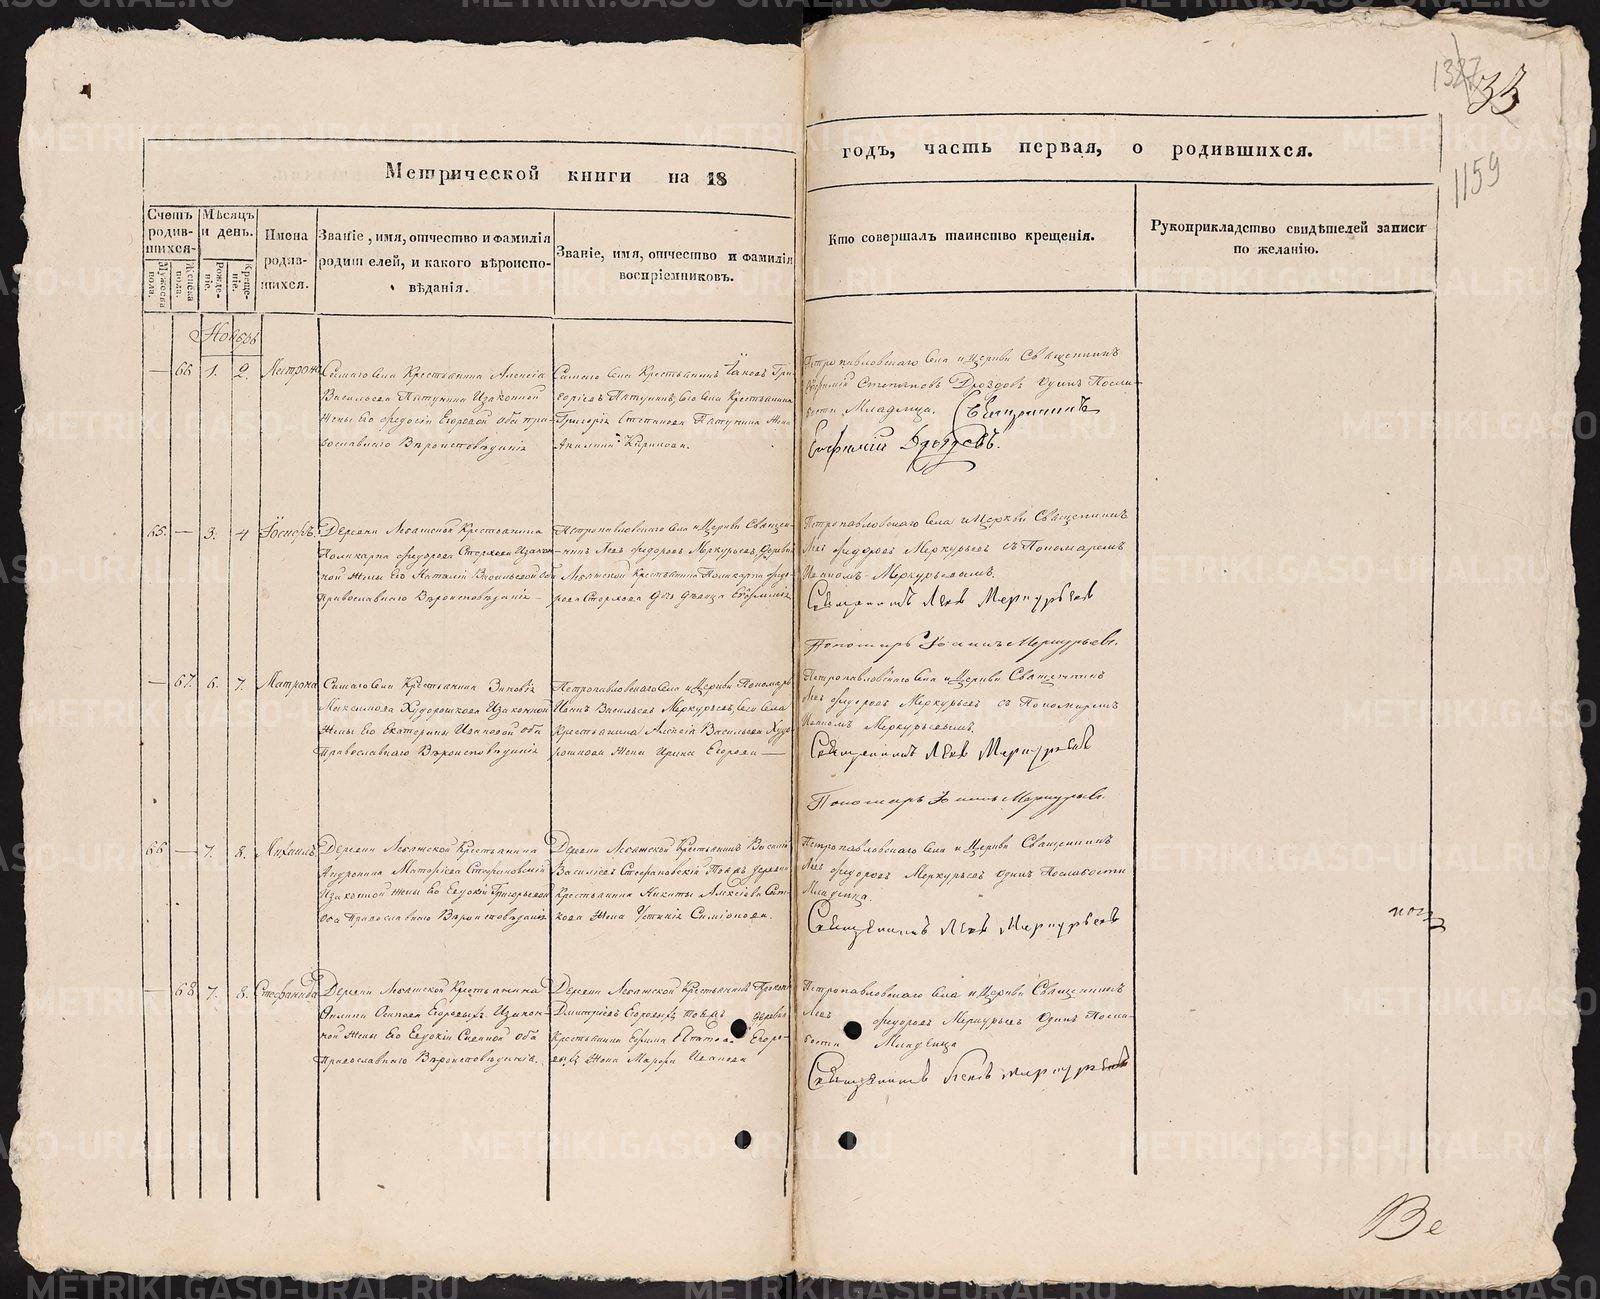 1327
33
1159
Метрической книги на 18
годъ, часть первая, о родившихся.
Счетъ родив-шихся.
Мужеска пола.
Женска пола.
Мѣсяцъ и день.
Рожде-ніе.
Креще-ніе.
Имена родив-шихся.
Званіе, имя, отчество и фамилія
родителей, и какого вѣроиспо-
вѣданія.
Званіе, имя, отчество и фамилія
воспріемниковъ.
Кто совершалъ таинство крещенія.
Рукоприкладство свидѣтелей записи
по желанію.
Ноябрь
— 66 1. 2. Матрона
Самаго Села Крестьянина Алексѣя
Васильева Пятунина Изаконной
Жены Его Федосіи Егоровой Оба пра-
вославнаго Вѣроисповѣданія
Самаго Села Крестьянинъ Іаковъ Гри-
горьевъ Пятунинъ, Сего Села Крестьянина
Григорія Степанова Пятунина Жена
Петропавловскаго Села и Церкви Священникъ
Евфимій Стефановъ Дроздовъ Одинъ Посла-
бости Младенца. Священникъ
Евфимій Дроздовъ.
65. — 3. 4 Іосифъ.
Деревни Лебяжской Крестьянина
Поликарпа Федорова Изакон-
ной Жены Его Наталіи Васильевой Оба
Православнаго Вѣроисповѣданія
Петропавловскаго Села и Церкви Священ-
никъ Левъ Федоровъ Меркурьевъ, Деревни
Лебяжской Крестьянина Поликарпа Федо-
рова Дочь Дѣвица Евфимія
Петропавловскаго Села и Церкви Священникъ
Левъ Федоровъ Меркурьевъ съ Пономаремъ
Иваномъ Меркурьевымъ.
Священникъ Левъ Меркурьевъ
Пономарь Іоаннъ Меркурьевъ.
— 67. 6. 7. Матрона
Самаго Села Крестьянина Зиновія
Максимова Худорошкова Изаконной
Жены Его Екатерины Ивановой Оба
Православнаго Вѣроисповѣданія
Петропавловскаго Села и Церкви Пономарь
Иванъ Васильевъ Меркурьевъ, Сего Села
Крестьянина Алексѣя Васильева Худо-
рошкова Жена Ирина Егорова
Петропавловскаго Села и Церкви Священникъ
Левъ Федоровъ Меркурьевъ съ Пономаремъ
Иваномъ Меркурьевымъ.
Священникъ Левъ Меркурьевъ
Пономарь Іоаннъ Меркурьевъ.
66 — 7. 8. Михаилъ
Деревни Лебяжской Крестьянина
Андроника Матфіева Стефановскій
Изаконной Жены Его Евдокіи Григорьевой
Оба Православнаго Вѣроисповѣданія
Деревни Лебяжской Крестьянинъ Василій
Васильевъ Стефановскій Тояжъ деревни
Крестьянина Никиты Алексѣева
Жена Устинія Симіонова.
Петропавловскаго Села и Церкви Священникъ
Левъ Федоровъ Меркурьевъ Одинъ Послабости
Младенца.
Священникъ Левъ Меркурьевъ
— 68 7. 8. Стефанида
Деревни Лебяжской Крестьянина
Филипа Осипова Егоровыхъ Изакон-
ной Жены Его Евдокіи Оба
Православнаго Вѣроисповѣданія.
Деревни Лебяжской Крестьянинъ
Дмитріевъ Егоровыхъ Тояжъ деревни
Крестьянина Ефима Егоро-
выхъ Жена Марфа Иванова
Петропавловскаго Села и Церкви Священникъ
Левъ Федоровъ Меркурьевъ Одинъ Посла-
бости Младенца
Священникъ Левъ Меркурьевъ
METRIKI.GASO-URAL.RU